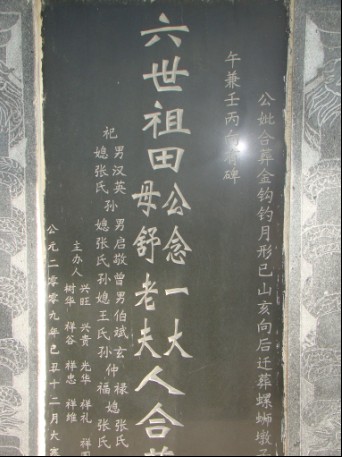 公妣合葬金钩钓月形巳山亥向后迁葬螺蛳墩子
午兼壬丙向有碑
六世祖田公念一大人合葬
母舒老夫
男汉英 男启敬曾男伯斌玄 禄 媳张氏
祀 孙 孙 孙仲福
媳张氏 媳张氏 媳王氏 媳张氏
主办人
兴旺 兴贵 光华 祥礼 祥
树华 祥谷 祥忠 祥维
公元二零零九年己丑十二月大寒